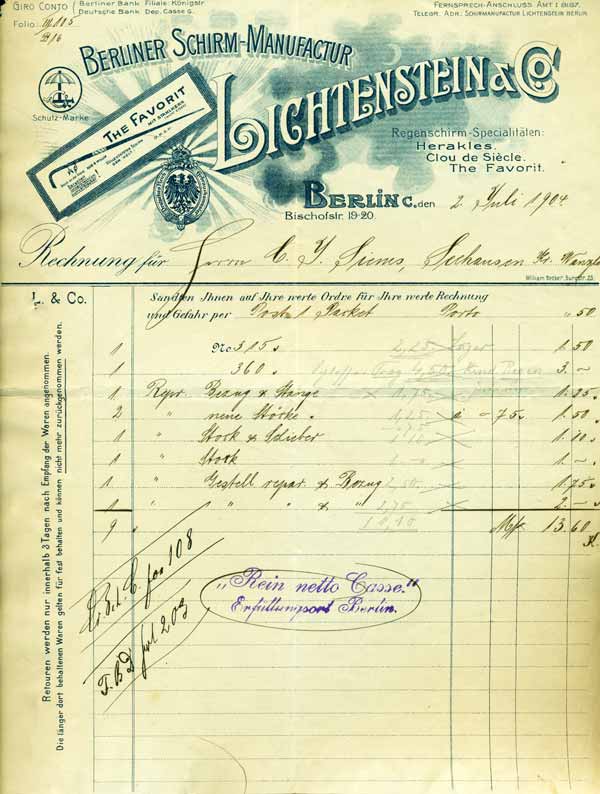 GIRO CONTO { Berliner Bank Filiale: Königstr.
Deutsche Bank Dep. Casse G.
FERNSPRECH-ANSCHLUSS AMT I 8187.
TELEGR. ADR.: SCHIRMANUFACTUR LICHTENSTEIN BERLIN
Folio
BERLINER SCHIRM-MANUFACTUR
LICHTENSTEIN & Co.
Schutz-Marke
THE FAVORIT
Regenschirm-Specialitäten:
Herakles.
Clou de Siècle.
The Favorit.
BERLIN C. den 2. Juli 1904.
Bischofstr. 19-20.
Rechnung für Herrn C. J. Siems, Seehausen Kr. Wanzle
L. & Co.
Sandten Ihnen auf Ihre werte Ordre für Ihre werte Rechnung
und Gefahr per Postst Packet Porto " 50
1 No 315 2,25 1.50
1 360 4,50 3.–
1 Repr. Bezug & Stange 1,75 1.25
2 " neue Stöcke 1,25 à –75 1.50
1 " Stock & Schieber 1.10
1 " Stock 1.–
1 " Gestell repar. & Bezug 1.75
1 " " " & " 2,75 2.–
9 Mk. 13.60
Retouren werden nur innerhalb 3 Tagen nach Empfang der Waren angenommen.
Die länger dort behaltenen Waren gelten für fest behalten und können nicht mehr zurückgenommen werden.
"Rein netto Casse."
Erfüllungsort Berlin.